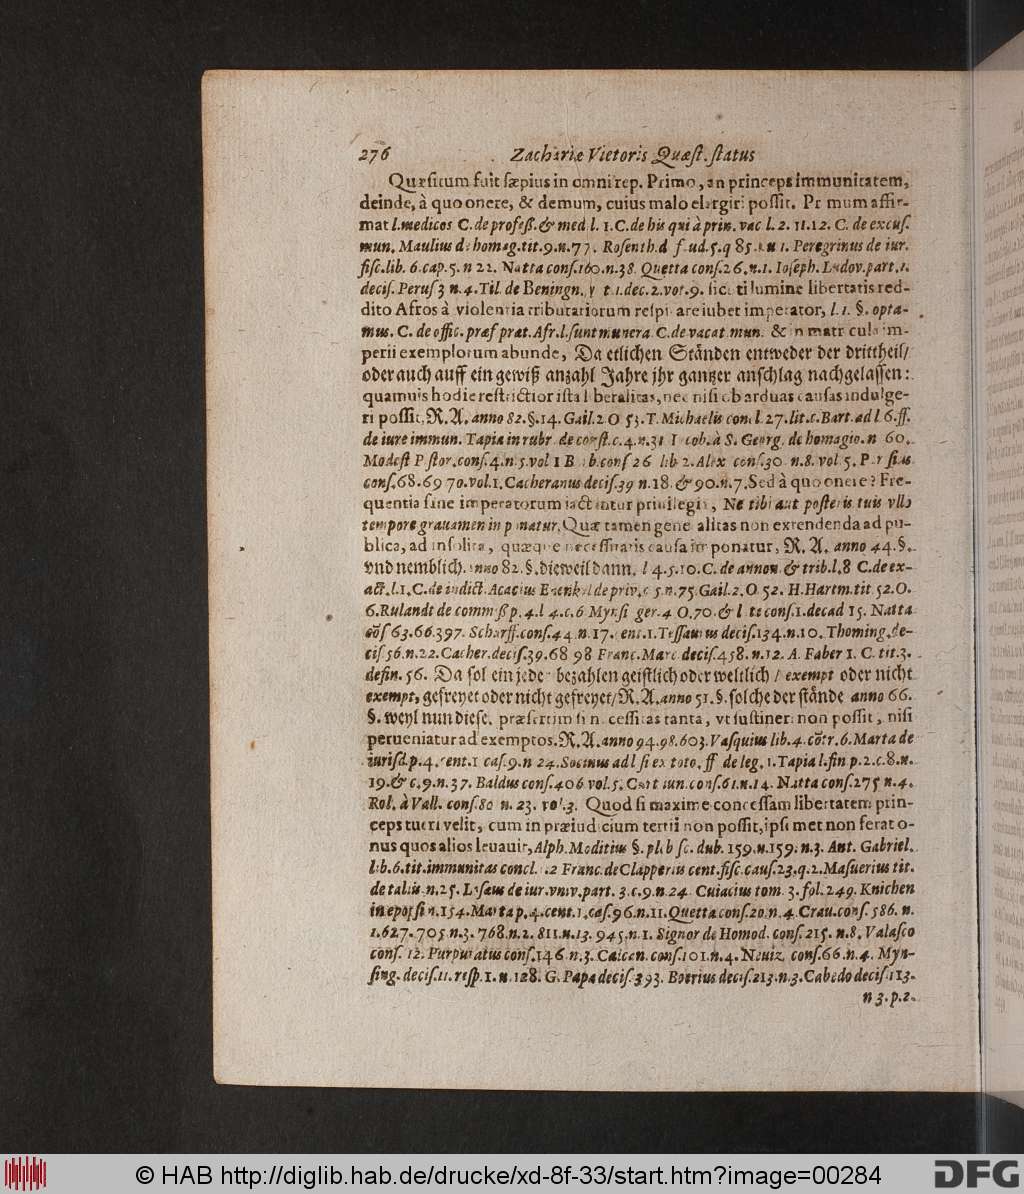 276 Zachariæ Vietoris Quæst. status
Quæsitum fuit sæpius in omni rep. Primo, an princeps immunitatem,
deinde, à quo onere, & demum, cuius malo elargiri possit. Primum affir-
mat l. medicos C. de profess. & med. l. 1. C. de his qui à prin. vac l. 2. 11.12. C. de excus.
mun. Maulius de homag. tit. 9. n. 77. Rosenth. d f ud. 5. q 85. n 1. Peregrinus de iur.
fisc. lib. 6. cap. 5. n 22. Natta cons. 160. n. 38. Quetta cons. 26. n. 1. Ioseph. Ludov. part. 1.
decis. Perus 3 n. 4. Til. de Beningn. t 1. dec. 2. vot. 9. sicuti lumine libertatis red-
dito Afros à violentia tributariorum respirare iubet imperator, l. 1. §. opta-
mus. C. de offic. præf præt. Afr. l. sunt munera C. de vacat. mun. & in matricula im-
perii exemplorum abunde, Da etlichen Ständen entweder der drittheil/
oder auch auff ein gewiß anzahl Jahre jhr gantzer anschlag nachgelassen:
quamuis hodie restrictior ista liberalitas, nec nisi ob arduas causas indulge-
ri possit, R. A. anno 82. §. 14. Gail. 2 O 53. T. Michaelis concl 27. lit. c. Bart. ad l 6. ff.
de iure immun. Tapia in rubr. de const. c. 4. n. 31 Iacob. à S. Georg. de homagio. n 60.
Modest Pistor. cons. 4. n. 5. vol 1 B cons 26 lib 2. Alex cons. 30 n. 8. vol 5. Parisius
cons. 68. 69 70. vol. 1. Cacheranus decis. 39 n. 18. & 90. n. 7. Sed à quo onere? Fre-
quentia sane imperatorum iactantur priuilegia, Ne tibi aut posteris tuis vllo
tempore grauamen imponatur, Quæ tamen generalitas non extendenda ad pu-
blica, ad insolita, quæque necessitatis causa imponatur, R. A. anno 44. §.
vnd nemblich. anno 82. §. dieweil dann. l 4. 5. 10. C. de annon. & trib. l. 8 C. de ex-
act. l. 1. C. de indict. Acacius Enenkel de priv. c 5. n. 75. Gail. 2. O 52. H. Hartm. tit 52. O.
6. Rulandt de commiss p. 4. l 4. c. 6 Mynsinger. 4 O. 70. & l te cons. 1. decad 15. Natta
cōs 63. 66. 397. Scharff. cons. 44 n. 17. cent. 1. Tessaurus decis. 134. n. 10. Thoming. de-
cis 56. n. 22. Cacher. decis. 39. 68 98 Franc. Marc. decis. 458. n. 12. A. Faber 1. C. tit. 3.
defin. 56. Da sol ein jeder bezahlen geistlich oder weltlich / exempt oder nicht
exempt, gefreyet oder nicht gefreyet/ R. A. anno 51. §. solche der stände anno 66.
§. weyl nun diese. præsertim si necessitas tanta, vt sustineri non possit, nisi
perueniatur ad exemptos. R. A. anno 94. 98. 603. Vasquius lib. 4. cōtr. 6. Marta de
iurisd. p. 4. cent. 1 cas. 9. n 24. Socinus ad l si ex toto. ff de leg. 1. Tapia l. fin p. 2. c. 8. n.
19. & c. 9. n. 37. Baldus cons. 406 vol. 5. Curt iun. cons. 61. n. 14. Natta cons. 275 n. 4.
Rol. à Vall. cons. 80 n. 23. vol. 3. Quod si maxime concessam libertatem prin-
ceps tueri velit, cum in præiudicium tertii non possit, ipsi met non ferat o-
nus quos alios leuauit, Alph. Moditius §. plebisc. dub. 159. n. 159. n. 3. Ant. Gabriel.
lib. 6. tit. immunitas concl. 2 Franc. de Clapperus cent. fisc. caus. 23. q. 2. Masuerius tit.
de taliis. n. 25. Lysæus de iur. vniv. part. 3. c. 9. n. 24. Cuiacius tom. 3. fol. 249. Knichen
in epopsi n. 154. Marta p. 4. cent. 1. cas. 96. n. 11. Quetta cons. 20. n. 4. Crau. cons. 586. n.
1. 627. 705 n. 3. 768. n. 2. 811. n. 13. 945. n. 1. Signor de Homod. cons. 215. n. 8. Valasco
cons. 12. Purpuratus cons. 146 n. 3. Calcan. cons. 101. n. 4. Neuiz. cons. 66. n. 4. Myn-
sing. decis. 11. resp. 1. n. 128. G. Papa decis. 393. Boerius decis. 213. n. 3. Cabedo decis. 113.
n 3. p. 2.
© HAB http://diglib.hab.de/drucke/xd-8f-33/start.htm?image=00284
DFG